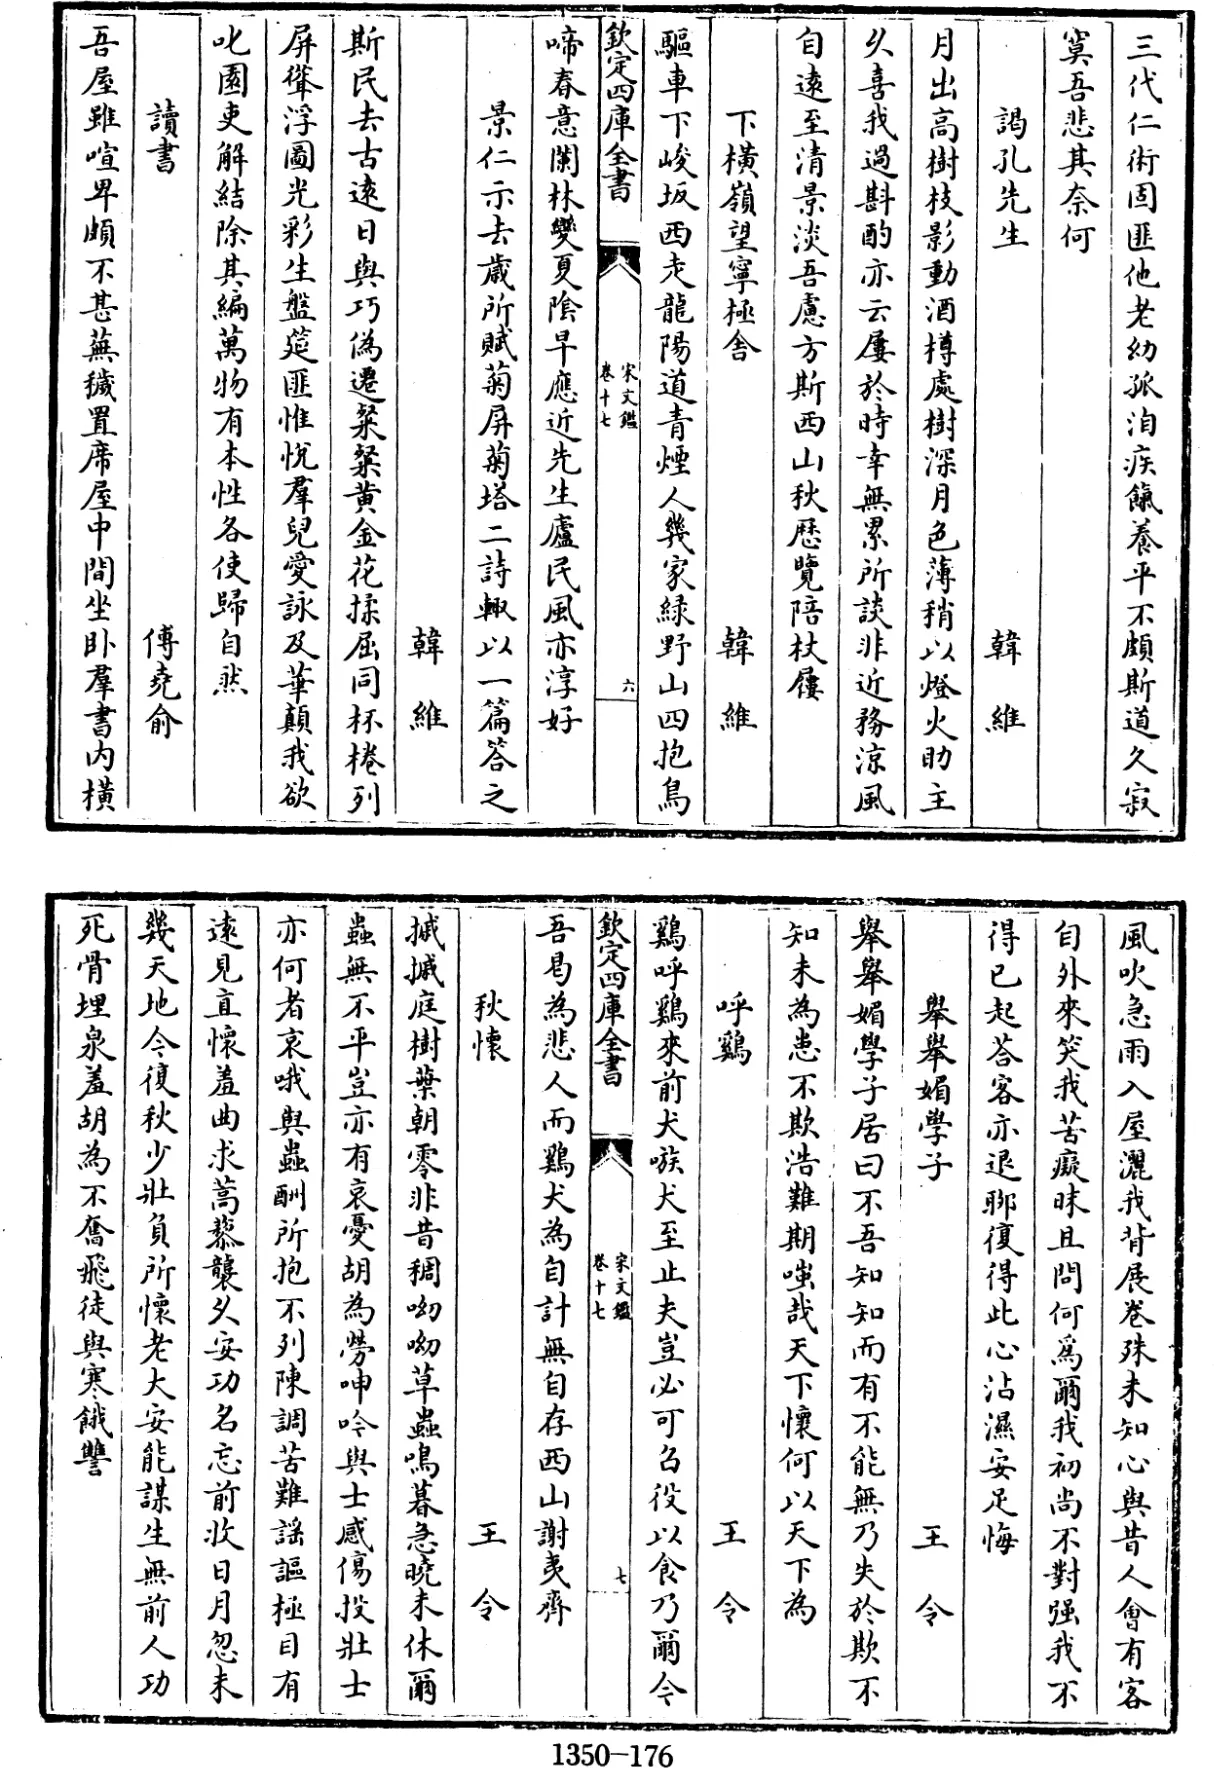 三代仁術固匪他老幼孤洎疾餼養平不頗斯道久寂
寞吾悲其奈何
謁孔先生 韓維
月出高樹枝影動酒樽處樹深月色薄稍以燈火助主
久喜我過斟酌亦云屢於時幸無累所談非近務涼風
自遠至清景淡吾慮方斯西山秋歷覽陪杖屨
下橫嶺望寧極舍 韓維
驅車下峻坂西走龍陽道青煙人幾家緑野山四抱鳥
欽定四庫全書 宋文鑑 卷十七 六
啼春意闌林變夏陰早應近先生廬民風亦淳好
景仁示去歲所賦菊屏菊塔二詩輙以一篇答之
韓維
斯民去古遠日與巧偽遷粲粲黄金花揉屈同杯棬列
屏聳浮圖光彩生盤筵匪惟悅羣兒愛詠及華顛我欲
叱園吏解結除其編萬物有本性各使歸自然
讀書 傅堯俞
吾屋雖喧卑頗不甚蕪穢置席屋中間坐卧羣書内橫
風吹急雨入屋灑我背展卷殊未知心與昔人會有客
自外來笑我苦癡昧且問何爲爾我初尚不對强我不
得已起荅客亦退聊復得此心沾濕安足悔
舉舉媚學子 王令
舉舉媚學子居曰不吾知知而有不能無乃失於欺不
知未為患不欺浩難期嗤哉天下懷何以天下為
呼鷄 王令
鷄呼鷄來前犬嗾犬至止夫豈必可召役以食乃爾今
欽定四庫全書 宋文鑑 卷十七 七
吾曷為悲人而鷄犬為自計無自存西山謝夷齊
秋懷 王令
摵摵庭樹葉朝零非昔稠呦呦草蟲鳴暮急曉未休爾
蟲無不平豈亦有哀憂胡為勞呻吟與士感傷投壯士
亦何者哀哦與蟲酬所抱不列陳調苦難謡謳極目有
遠見直懷羞曲求蒿藜襲久安功名忘前收日月忽未
幾天地今復秋少壯負所懷老大安能謀生無前人功
死骨埋泉羞胡為不奮飛徒與寒餓讐
1350-176